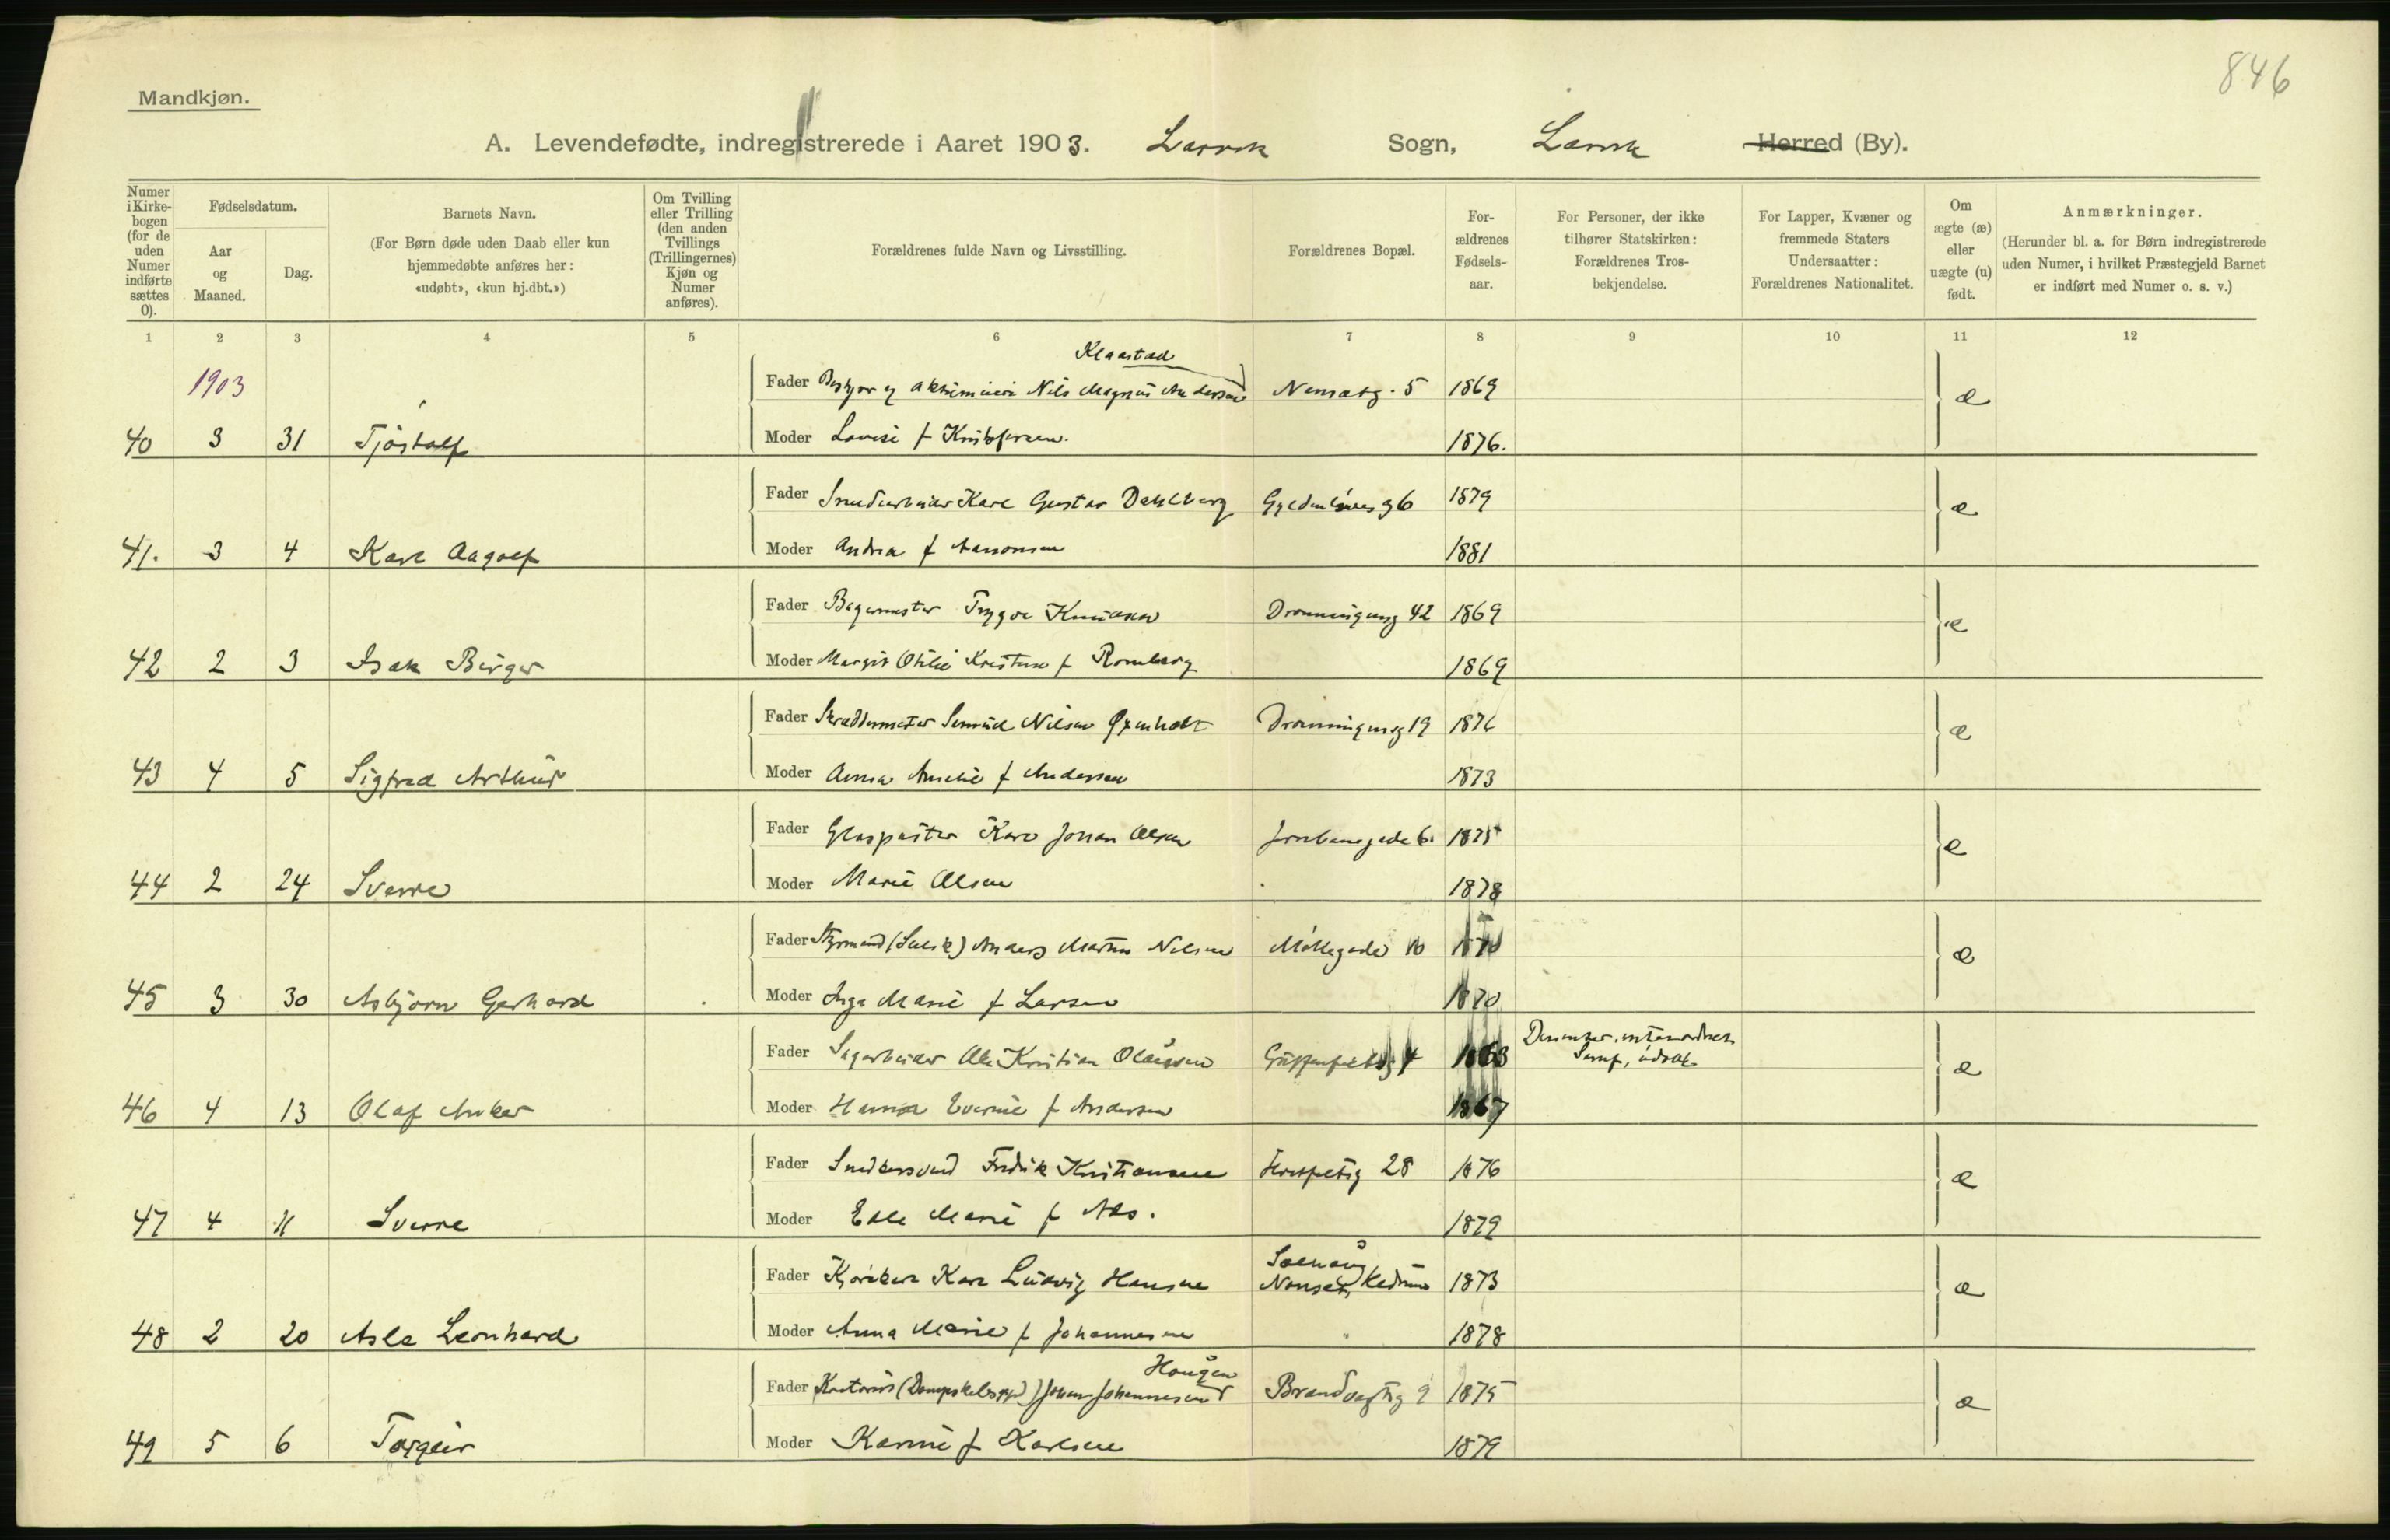 846
Mandkjøn.
A. Levendefødte, indregistrerede i Aaret 1903. Larvik Sogn, Larvik Herred (By).
Numer i Kirke-bogen (for de uden Numer indførte sættes 0).
Fødselsdatum.
Aar og Maaned.
Dag.
Barnets Navn.
(For Børn døde uden Daab eller kun hjemmedøbte anføres her: «udøbt», «kun hj.dbt.»)
Om Tvilling eller Trilling (den anden Tvillings (Trillingernes) Kjøn og Numer anføres).
Forældrenes fulde Navn og Livsstilling.
Forældrenes Bopæl.
For-ældrenes Fødsels-aar.
For Personer, der ikke tilhører Statskirken: Forældrenes Tros-bekjendelse.
For Lapper, Kvæner og fremmede Staters Undersaatter: Forældrenes Nationalitet.
Om ægte (æ) eller uægte (u) født.
Anmærkninger.
(Herunder bl. a. for Børn indregistrerede uden Numer, i hvilket Præstegjeld Barnet er indført med Numer o. s. v.)
1 2 3 4 5 6 7 8 9 10 11 12
Klaastad
1903 Fader Nils Magnus Andersen Nansetg. 5 1869 æ
40 3 31 Tjøstolf Moder Lovise f Kristofersen. 1876.
Fader Karl Gustav Dahlberg Gyldenløvesg 6 1879 æ
41. 3 4 Karl Aagolf Moder Andrea f Aaronsen 1881
Fader Bagermester Trygve Knudsen Dronningensg 42 1869 æ
42 2 3 Isak Birger Moder Margit Otilie Kristine f Romberg 1869
Fader Skræddermester Nilsen Øxenholt Dronningensg 19 187 æ
43 4 5 Sigfred Arthur Moder Anna Amalie f Andersen 1873
Fader Glaspuster Karl Johan Olsen Jernbanegade 6. 1875 æ
44 2 24 Sverre Moder Marie Olsen 1878
Fader Styrmand Anders Martin Nilsen Møllegade 10 1870 æ
45 3 30 Asbjørn Gerhard Moder Inga Marie f Larsen 1870
Fader Sagarbeider Ole Kristian Olaussen Griffenfeldtsg 4 1863 æ
46 4 13 Olaf Anker Moder Hanna f Andersen 1867
Fader Snedkersvend Fredrik Kristiansen 28 1876 æ
47 4 11 Sverre Moder Marie f 1879
Fader Karl Ludvig Hansen Nanset, Hedrum 1873 æ
48 2 20 Asle Leonhard Moder Anna Marie f Johannesen 1878
Haugen
Fader Kontorist Johan Johannesen Brandvagtsg 9 1875 æ
49 5 6 Torgeir Moder Karine f Karlsen 1879